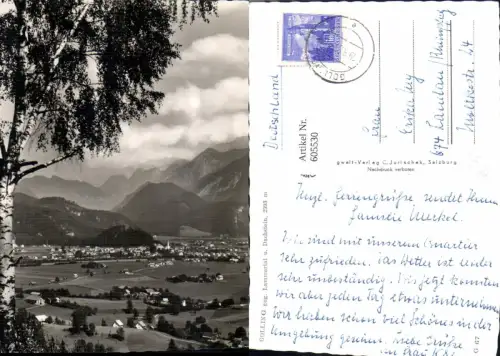 Deutschland
Artikel Nr.
605530
Frau
Erika
674 Landau/
C. Jurischek, Salzburg
Nachdruck verboten
GOLLING geg. Lammertal u. Dachstein, 2993 m
Hzgl. Feriengrüsse sendet Ihnen
Familie Merkel.
Wir sind mit unserem Quartier
sehr zufrieden. Das Wetter ist leider
sehr unbeständig. Bis jetzt konnten
wir aber jeden Tag etwas unternehmen
Wir haben schon viel Schönes in der
Umgebung gesehen. Liebe Grüße